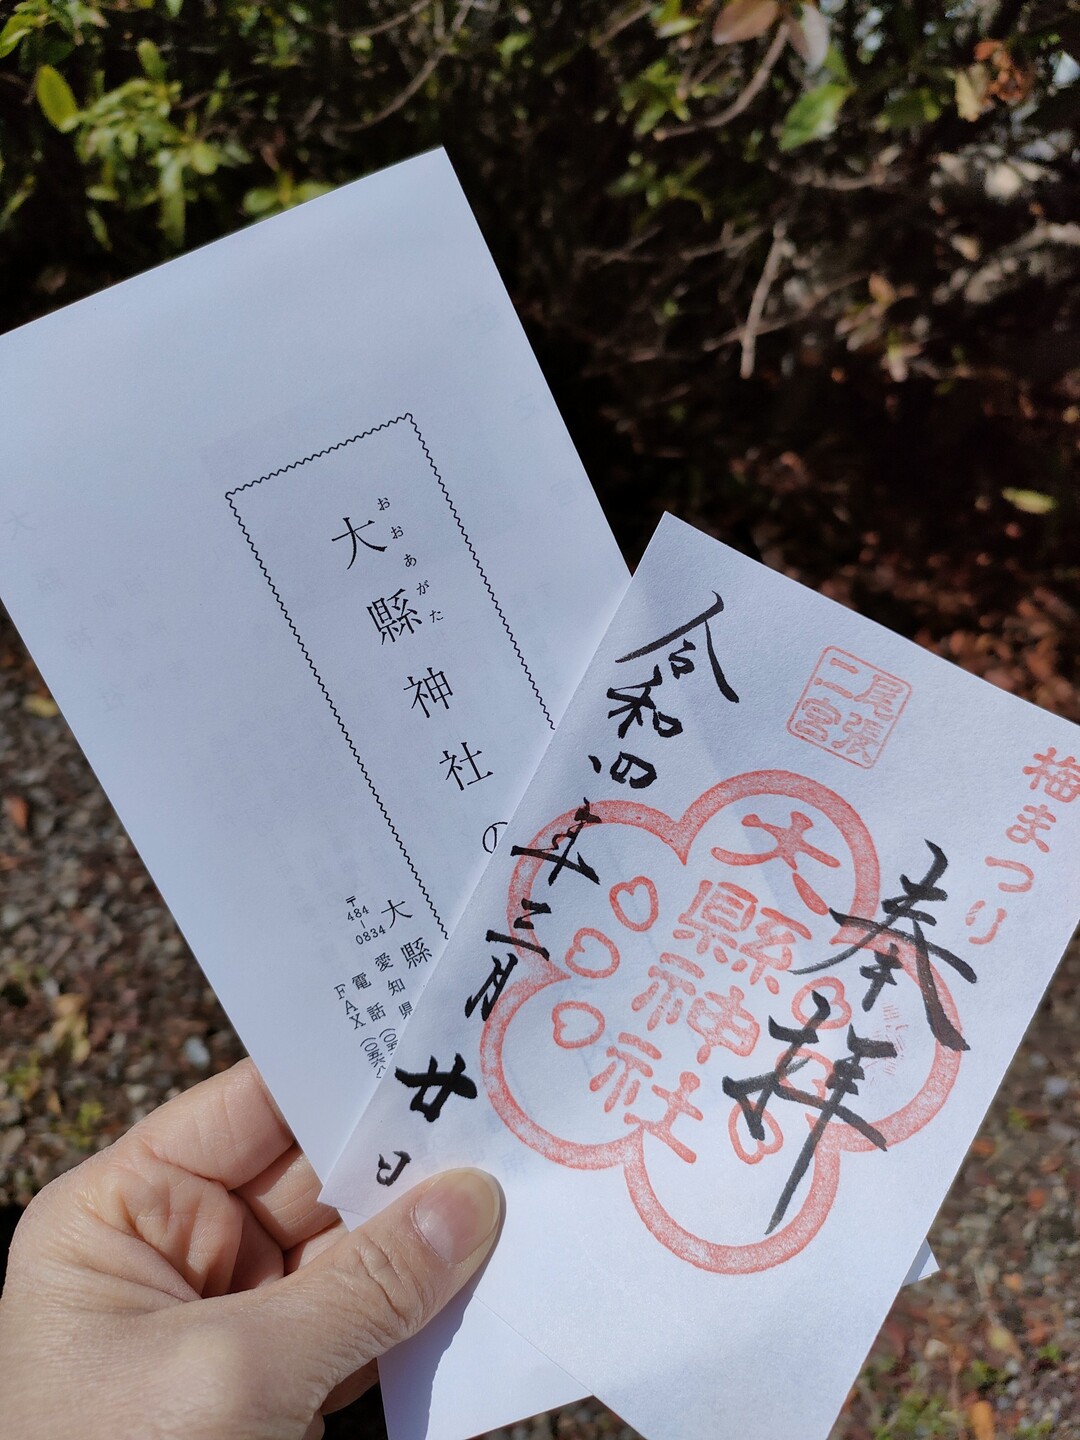 大縣神社の
おおあがた
大縣
〒484-0834
愛知県
電話(〇五
FAX(〇五六八
令和四年三月廿日
尾張
二宮
梅まつり
奉拝
大縣神社